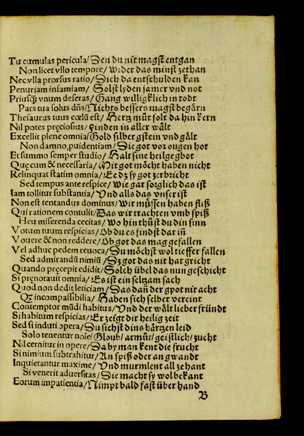 Tu cumulas pericula/ Den du nit magst entgan
Non licet vllo tempore/ Wider das minst zethan
Nec vlla prorsus ratio/ Sich da entschulden kan
Penuriam infamiam/ Solst lyden jamer vnd not
Priusq̃ vnum deseras/ Gang willigklich in todt
Pars tua solus dñs/ Nichts bessers magst begårn
Thesaurus tuus cœlũ est/ Hertz můß solt da hin kern
Nil potes preciosius/ Finden in aller wält
Excellit plene omnia/ Gold silber gstein vnd gält
Non damno, puidentiam/ Sie got vor ongen hot
Et summo semper studio/ Halt sine heilge bot
Quæ cum & necessaria/ Mit got möcht haben nicht
Relinquat statim omnia/ E dz sy got zerbricht
Sed tempus ante respice/ Wie gat so glich das ist
Iam tollitur substantia/ Vnd alls das vnser ist
Non est tentandus dominus/ Wir müssen haben spiß
Qui rationem contulit/ Das wir trachten vmb spiß
Heu miserenda cecitas/ Wo hin thůst du din sinn
Votum tuum respicias/ Ob du es findst dar iñ
Vouere & non reddere/ Ob got das mag gefallen
Vel adhuc pedem reuoca/ Du möchst wol tieffer fallen
Sed admirandũ nimis/ Dz got das nit hat gricht
Quando præcepit edidit/ Solch übel das nun geschicht
Si prenotauit omnia/ Es ist ein seltzam sach
Quod non dedit leticiam/ Das dañ der spot nit acht
Qz incompasibilia/ Haben sich selber vereint
Contemptor mũdi habitus/ Vnd der wält lieber fründt
Si habitum respicias/ Er zeigt dir heilig zeit
Sed si induti opera/ Du sichst dins hårtzen leid
Solo tenentur nomine/ Gloub/ armůt/ geistlich/ zucht
Nil cernitur in opere/ Da by man kent die frucht
Si nimium subtrahitur/ An spiß oder an gwandt
Inquietantur maxime/ Vnd murmlent all zehant
Si venerit aduersitas/ Sie macht sy wolbekant
Eorum impatientia/ Nimpt bald fast über hand
B